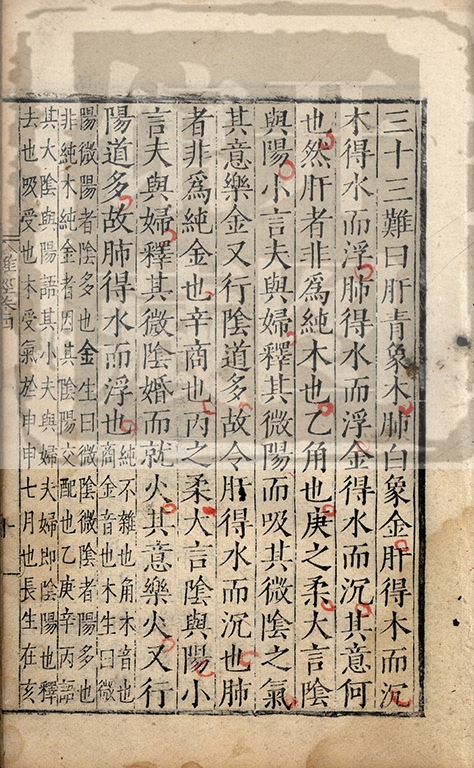 三十三難曰肝青象木肺白象金肝得木而沉
木得水而浮肺得水而浮金得水而沉其意何
也然肝者非爲純木也乙角也庚之柔大言陰
與陽小言夫與婦釋其微陽而吸其微陰之氣
其意樂金又行陰道多故令肝得水而沉也肺
者非爲純金也辛商也丙之柔大言陰與陽小
言夫與婦釋其微陰婚而就火其意樂火又行
陽道多故肺得水而浮也
純不雜也角木音也
商金音也木生曰微
陽微陽者陰多也金生曰微陰微陰者陽多也
非純木純金者因其陰陽交配也乙庚辛丙語
其大陰與陽語其小夫與婦夫婦即陰陽也釋
去也吸受也木受氣於申申七月也長生在亥